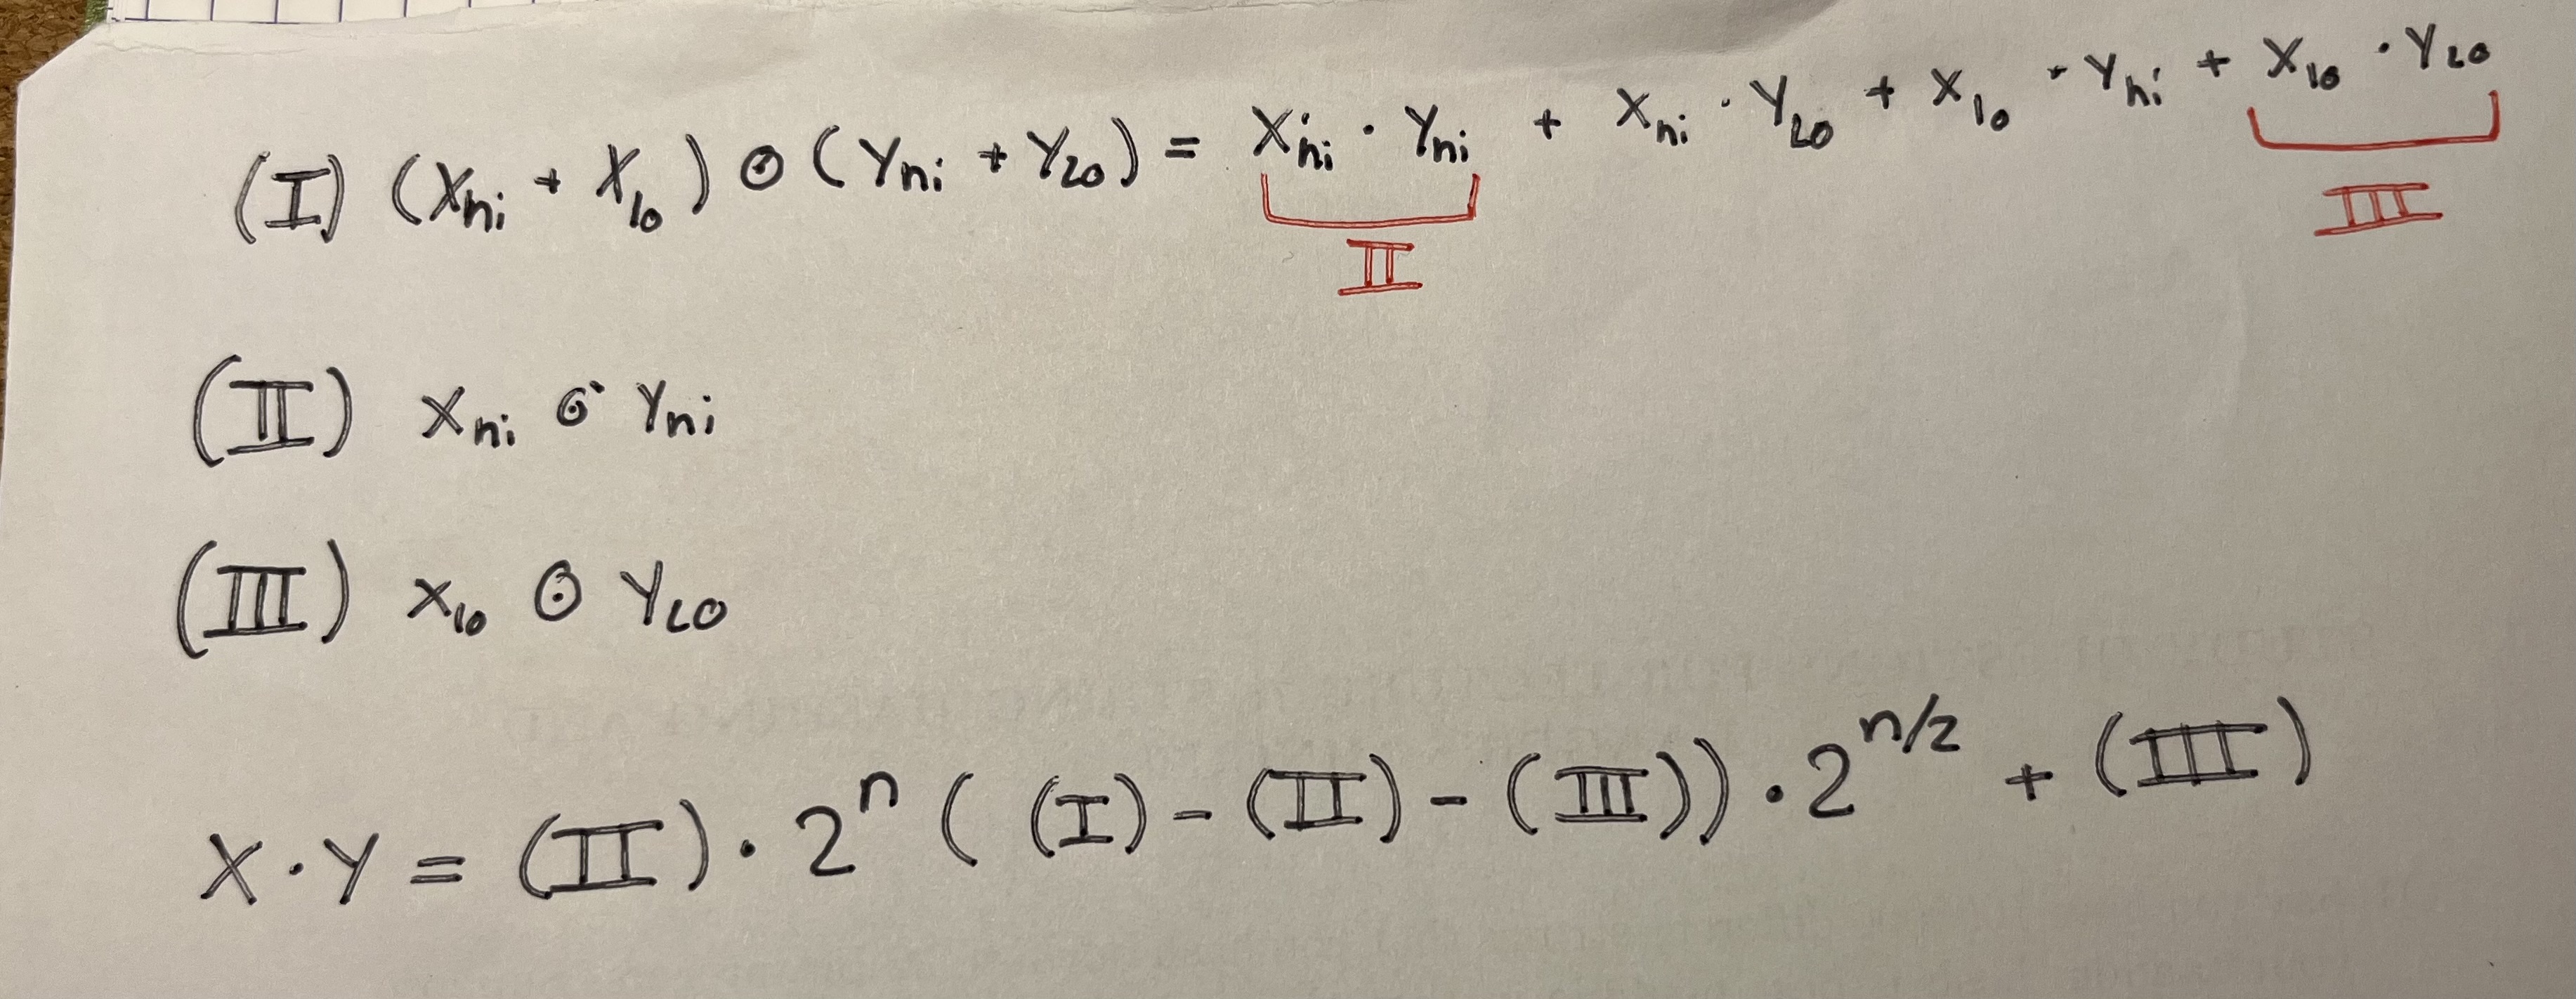 (I) (X_hi + X_lo) ⊙ (Y_hi + Y_LO) = X_hi · Y_hi + X_hi · Y_LO + X_lo · Y_hi + X_lo · Y_LO
II III
(II) X_hi ⊙ Y_hi
(III) X_lo ⊙ Y_LO
X · Y = (II) · 2^n ( (I) - (II) - (III)) · 2^n/2 + (III)